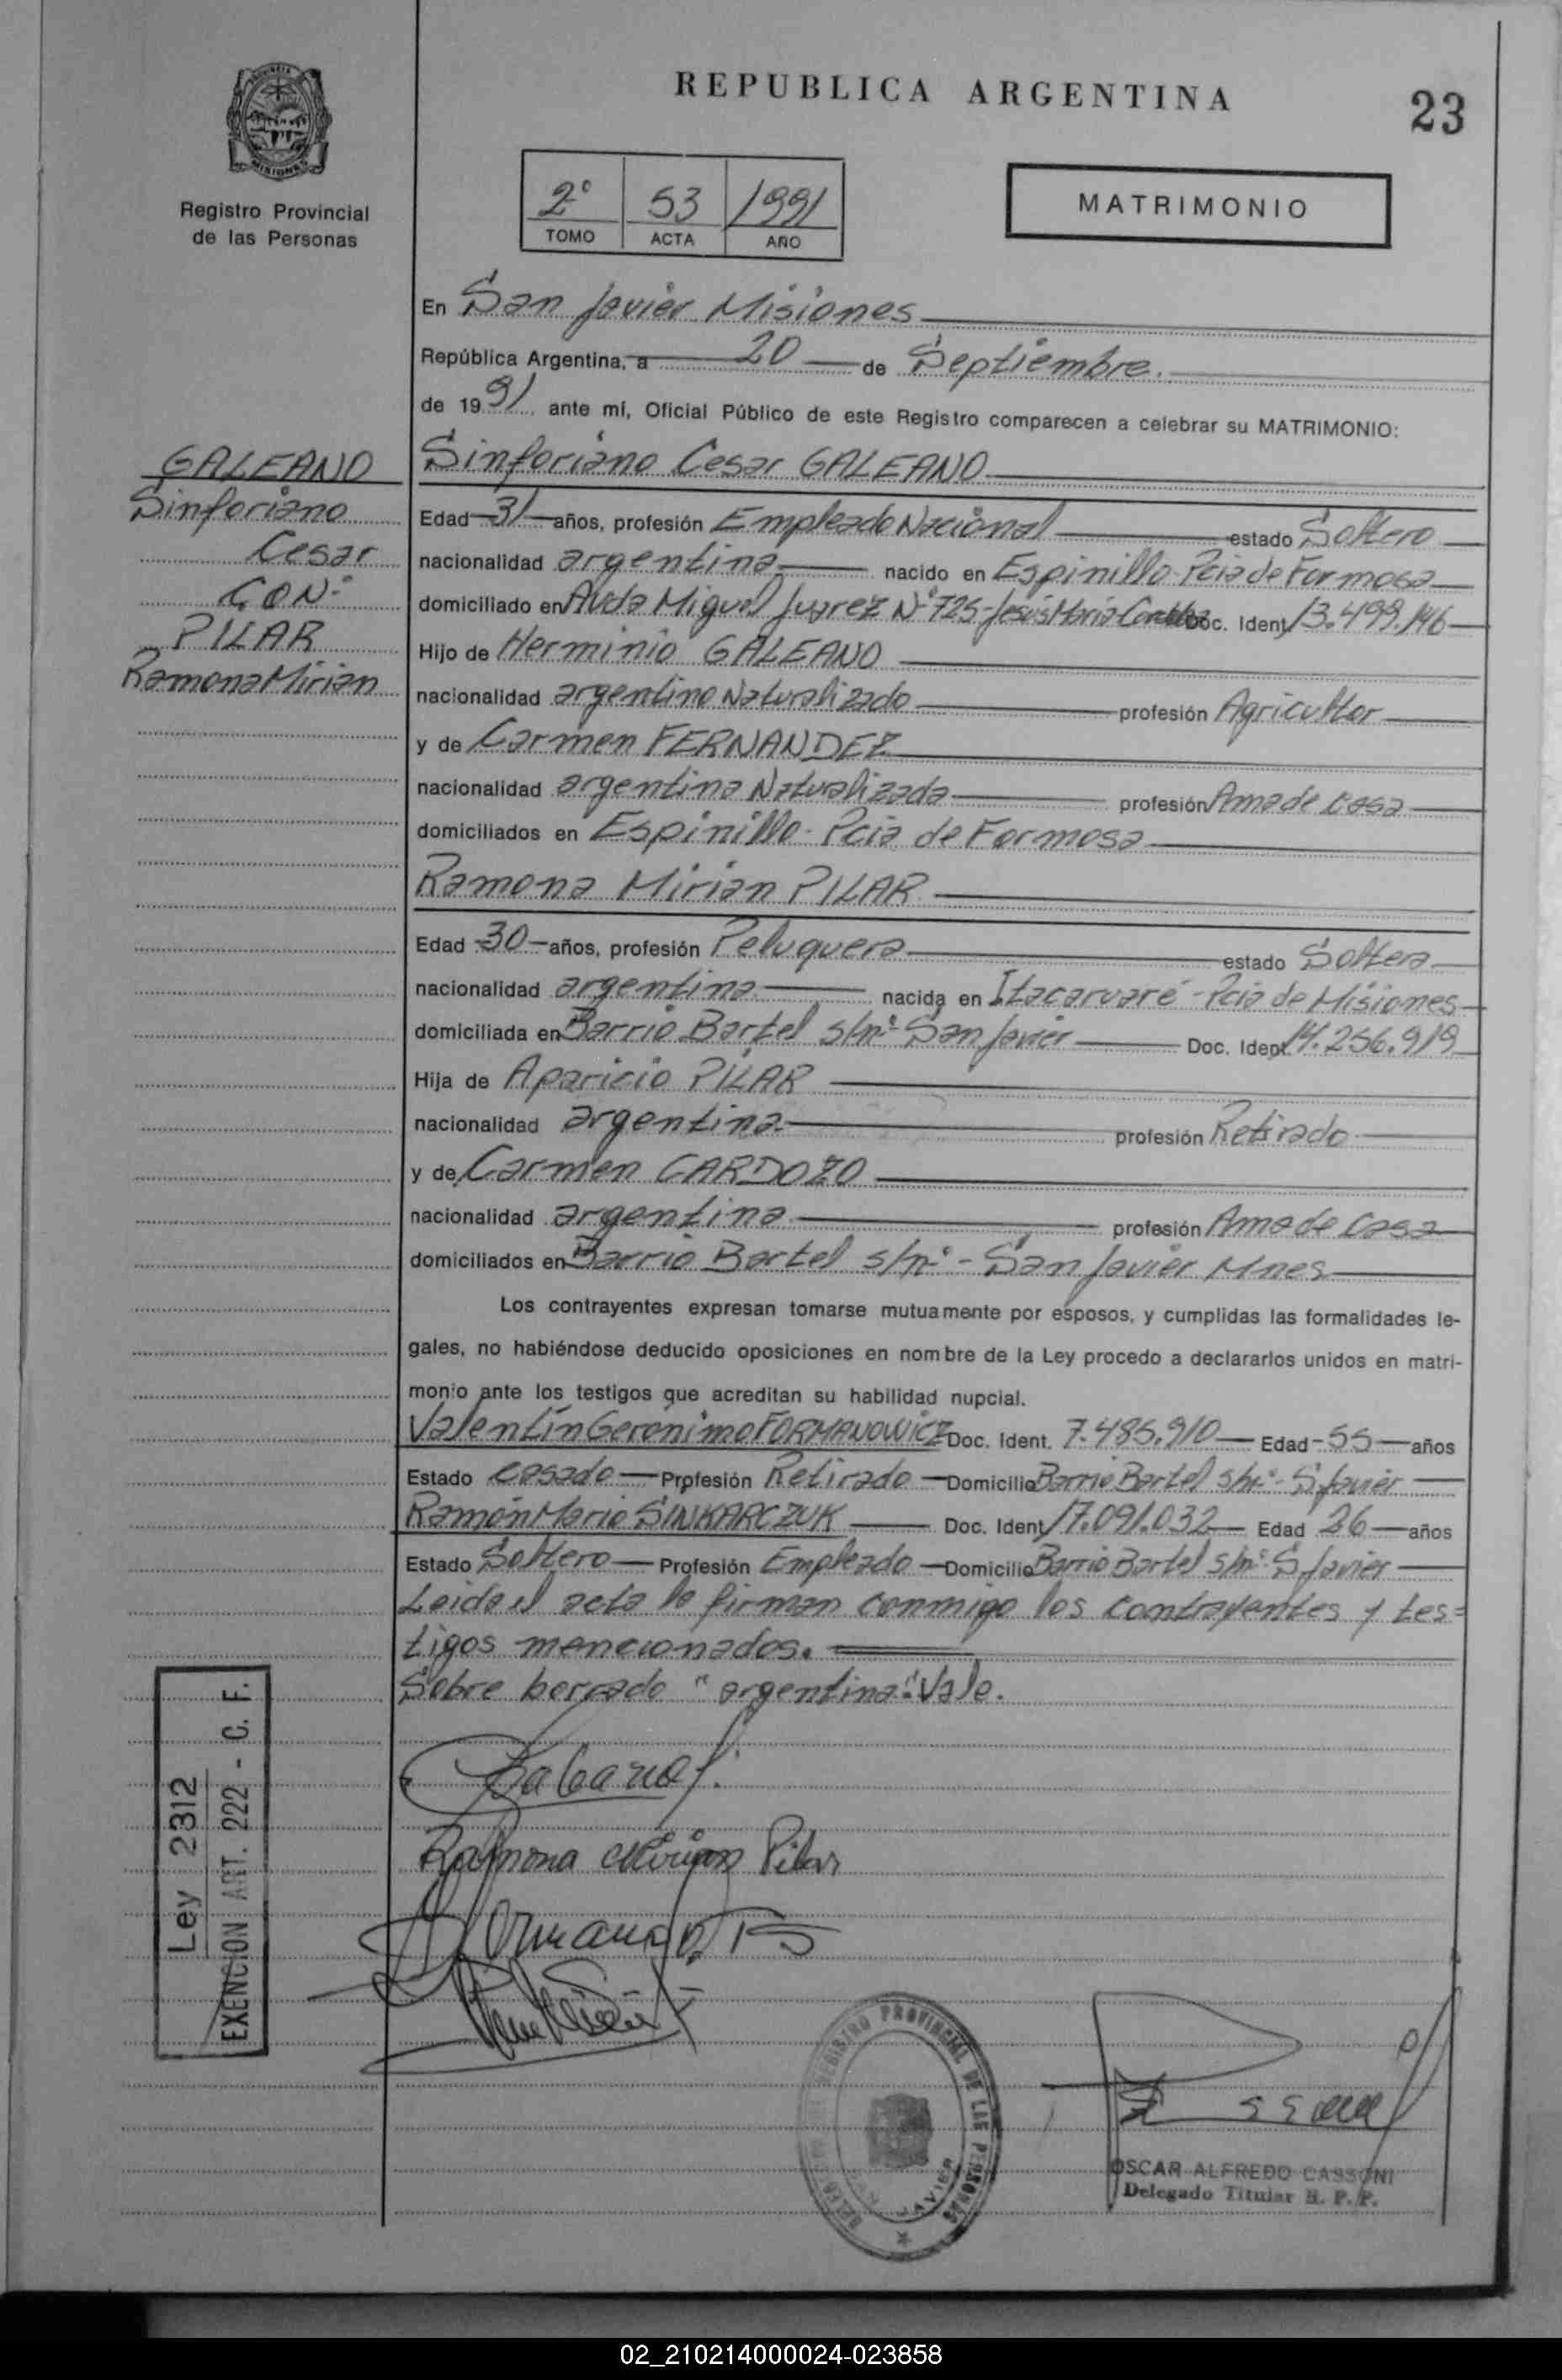 REPUBLICA ARGENTINA
23
MISIONES
Registro Provincial
de las Personas
2º 53 1991
TOMO ACTA AÑO
MATRIMONIO
En San Javier Misiones
República Argentina, a 20 de Septiembre.
de 1991 ante mí, Oficial Público de este Registro comparecen a celebrar su MATRIMONIO:
GALEANO
Sinforiano
Cesar
CON:
PILAR
Ramona Mirian
Sinforiano Cesar GALEANO
Edad 31 años, profesión Empleado Nacional estado Soltero
nacionalidad argentina nacido en Espinillo-Pcia de Formosa
domiciliado en Avda Miguel Juarez Nº 725-Jesús María-Cordoba Doc. Ident. 13.499.146
Hijo de Herminio GALEANO
nacionalidad argentino Naturalizado profesión Agricultor
y de Carmen FERNANDEZ
nacionalidad argentina Naturalizada profesión Ama de casa
domiciliados en Espinillo-Pcia de Formosa
Ramona Mirian PILAR
Edad 30 años, profesión Peluquera estado Soltera
nacionalidad argentina nacida en Itacaruaré-Pcia de Misiones
domiciliada en Barrio Bartel s/nº San Javier Doc. Ident. 14.256.919
Hija de Aparicio PILAR
nacionalidad argentina profesión Retirado
y de Carmen CARDOZO
nacionalidad argentina profesión Ama de Casa
domiciliados en Barrio Bartel s/nº - San Javier Mnes
Los contrayentes expresan tomarse mutuamente por esposos, y cumplidas las formalidades le-
gales, no habiéndose deducido oposiciones en nombre de la Ley procedo a declararlos unidos en matri-
monio ante los testigos que acreditan su habilidad nupcial.
Valentín Gerónimo FORMANOWICZ Doc. Ident. 7.485.910 Edad 55 años
Estado casado Profesión Retirado Domicilio Barrio Bartel s/nº-S. Javier
Ramón Mario SINKARCZUK Doc. Ident. 17.091.032 Edad 26 años
Estado Soltero Profesión Empleado Domicilio Barrio Bartel s/nº-S. Javier
Leida el acta la firman conmigo los contrayentes y tes=
tigos mencionados.
Sobre borrado "argentina": Vale.
Ley 2312
EXENCION ART. 222 - C. F.
Ramona Mirian Pilar
REGISTRO PROVINCIAL DE LAS PERSONAS
JAVIER
OSCAR ALFREDO CASSONI
Delegado Titular R. P. P.
02_210214000024-023858